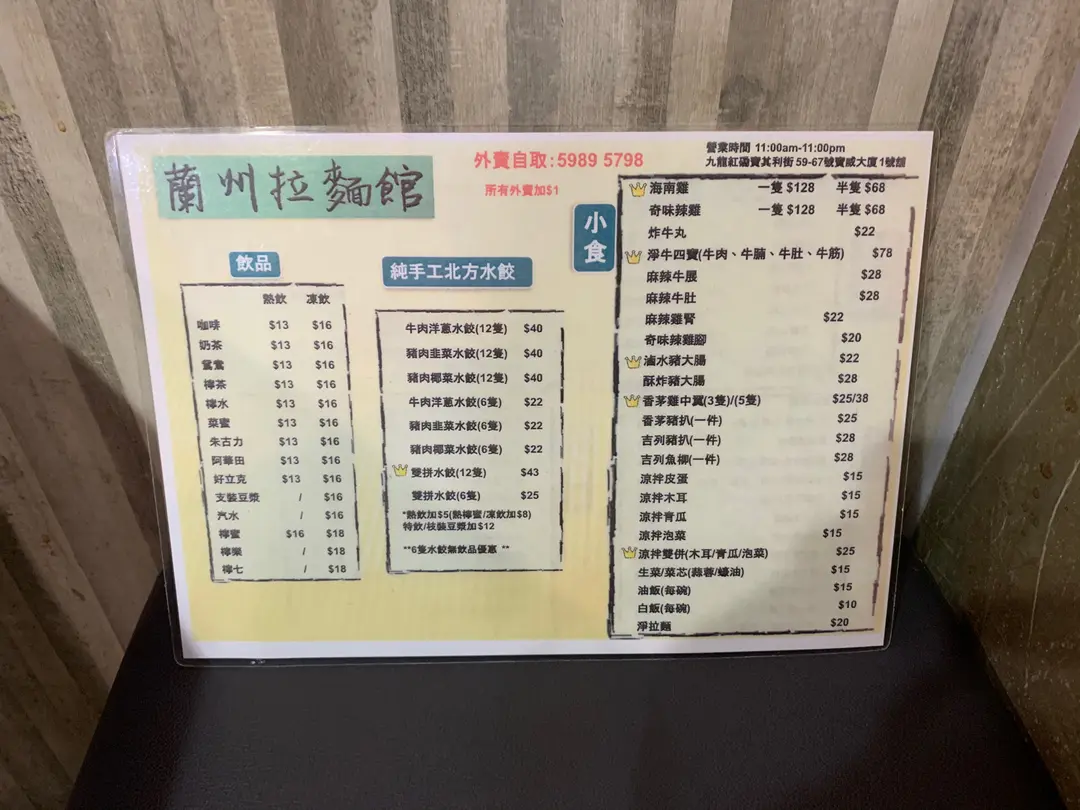 蘭州拉麵館
外賣自取:5989 5798
所有外賣加$1
營業時間 11:00am-11:00pm
九龍紅磡寶其利街 59-67號寶威大廈1號舖
飲品
熱飲 凍飲
咖啡 $13 $16
奶茶 $13 $16
鴛鴦 $13 $16
檸茶 $13 $16
檸水 $13 $16
菜蜜 $13 $16
朱古力 $13 $16
阿華田 $13 $16
好立克 $13 $16
支裝豆漿 / $16
汽水 / $16
檸蜜 $16 $18
檸樂 / $18
檸七 / $18
純手工北方水餃
牛肉洋蔥水餃(12隻) $40
豬肉韭菜水餃(12隻) $40
豬肉椰菜水餃(12隻) $40
牛肉洋蔥水餃(6隻) $22
豬肉韭菜水餃(6隻) $22
豬肉椰菜水餃(6隻) $22
雙拼水餃(12隻) $43
雙拼水餃(6隻) $25
*熱飲加$5(熱檸蜜/凍飲加$8)
特飲/枝裝豆漿加$12
**6隻水餃無飲品優惠 **
小食
海南雞 一隻 $128 半隻 $68
奇味辣雞 一隻 $128 半隻 $68
炸牛丸 $22
淨牛四寶(牛肉、牛腩、牛肚、牛筋) $78
麻辣牛展 $28
麻辣牛肚 $28
麻辣雞腎 $22
奇味辣雞腳 $20
滷水豬大腸 $22
酥炸豬大腸 $28
香茅雞中翼(3隻)/(5隻) $25/38
香茅豬扒(一件) $25
吉列豬扒(一件) $28
吉列魚柳(一件) $28
涼拌皮蛋 $15
涼拌木耳 $15
涼拌青瓜 $15
涼拌泡菜 $15
涼拌雙併(木耳/青瓜/泡菜) $25
生菜/菜芯(蒜蓉/蠔油) $15
油飯(每碗) $15
白飯(每碗) $10
淨拉麵 $20